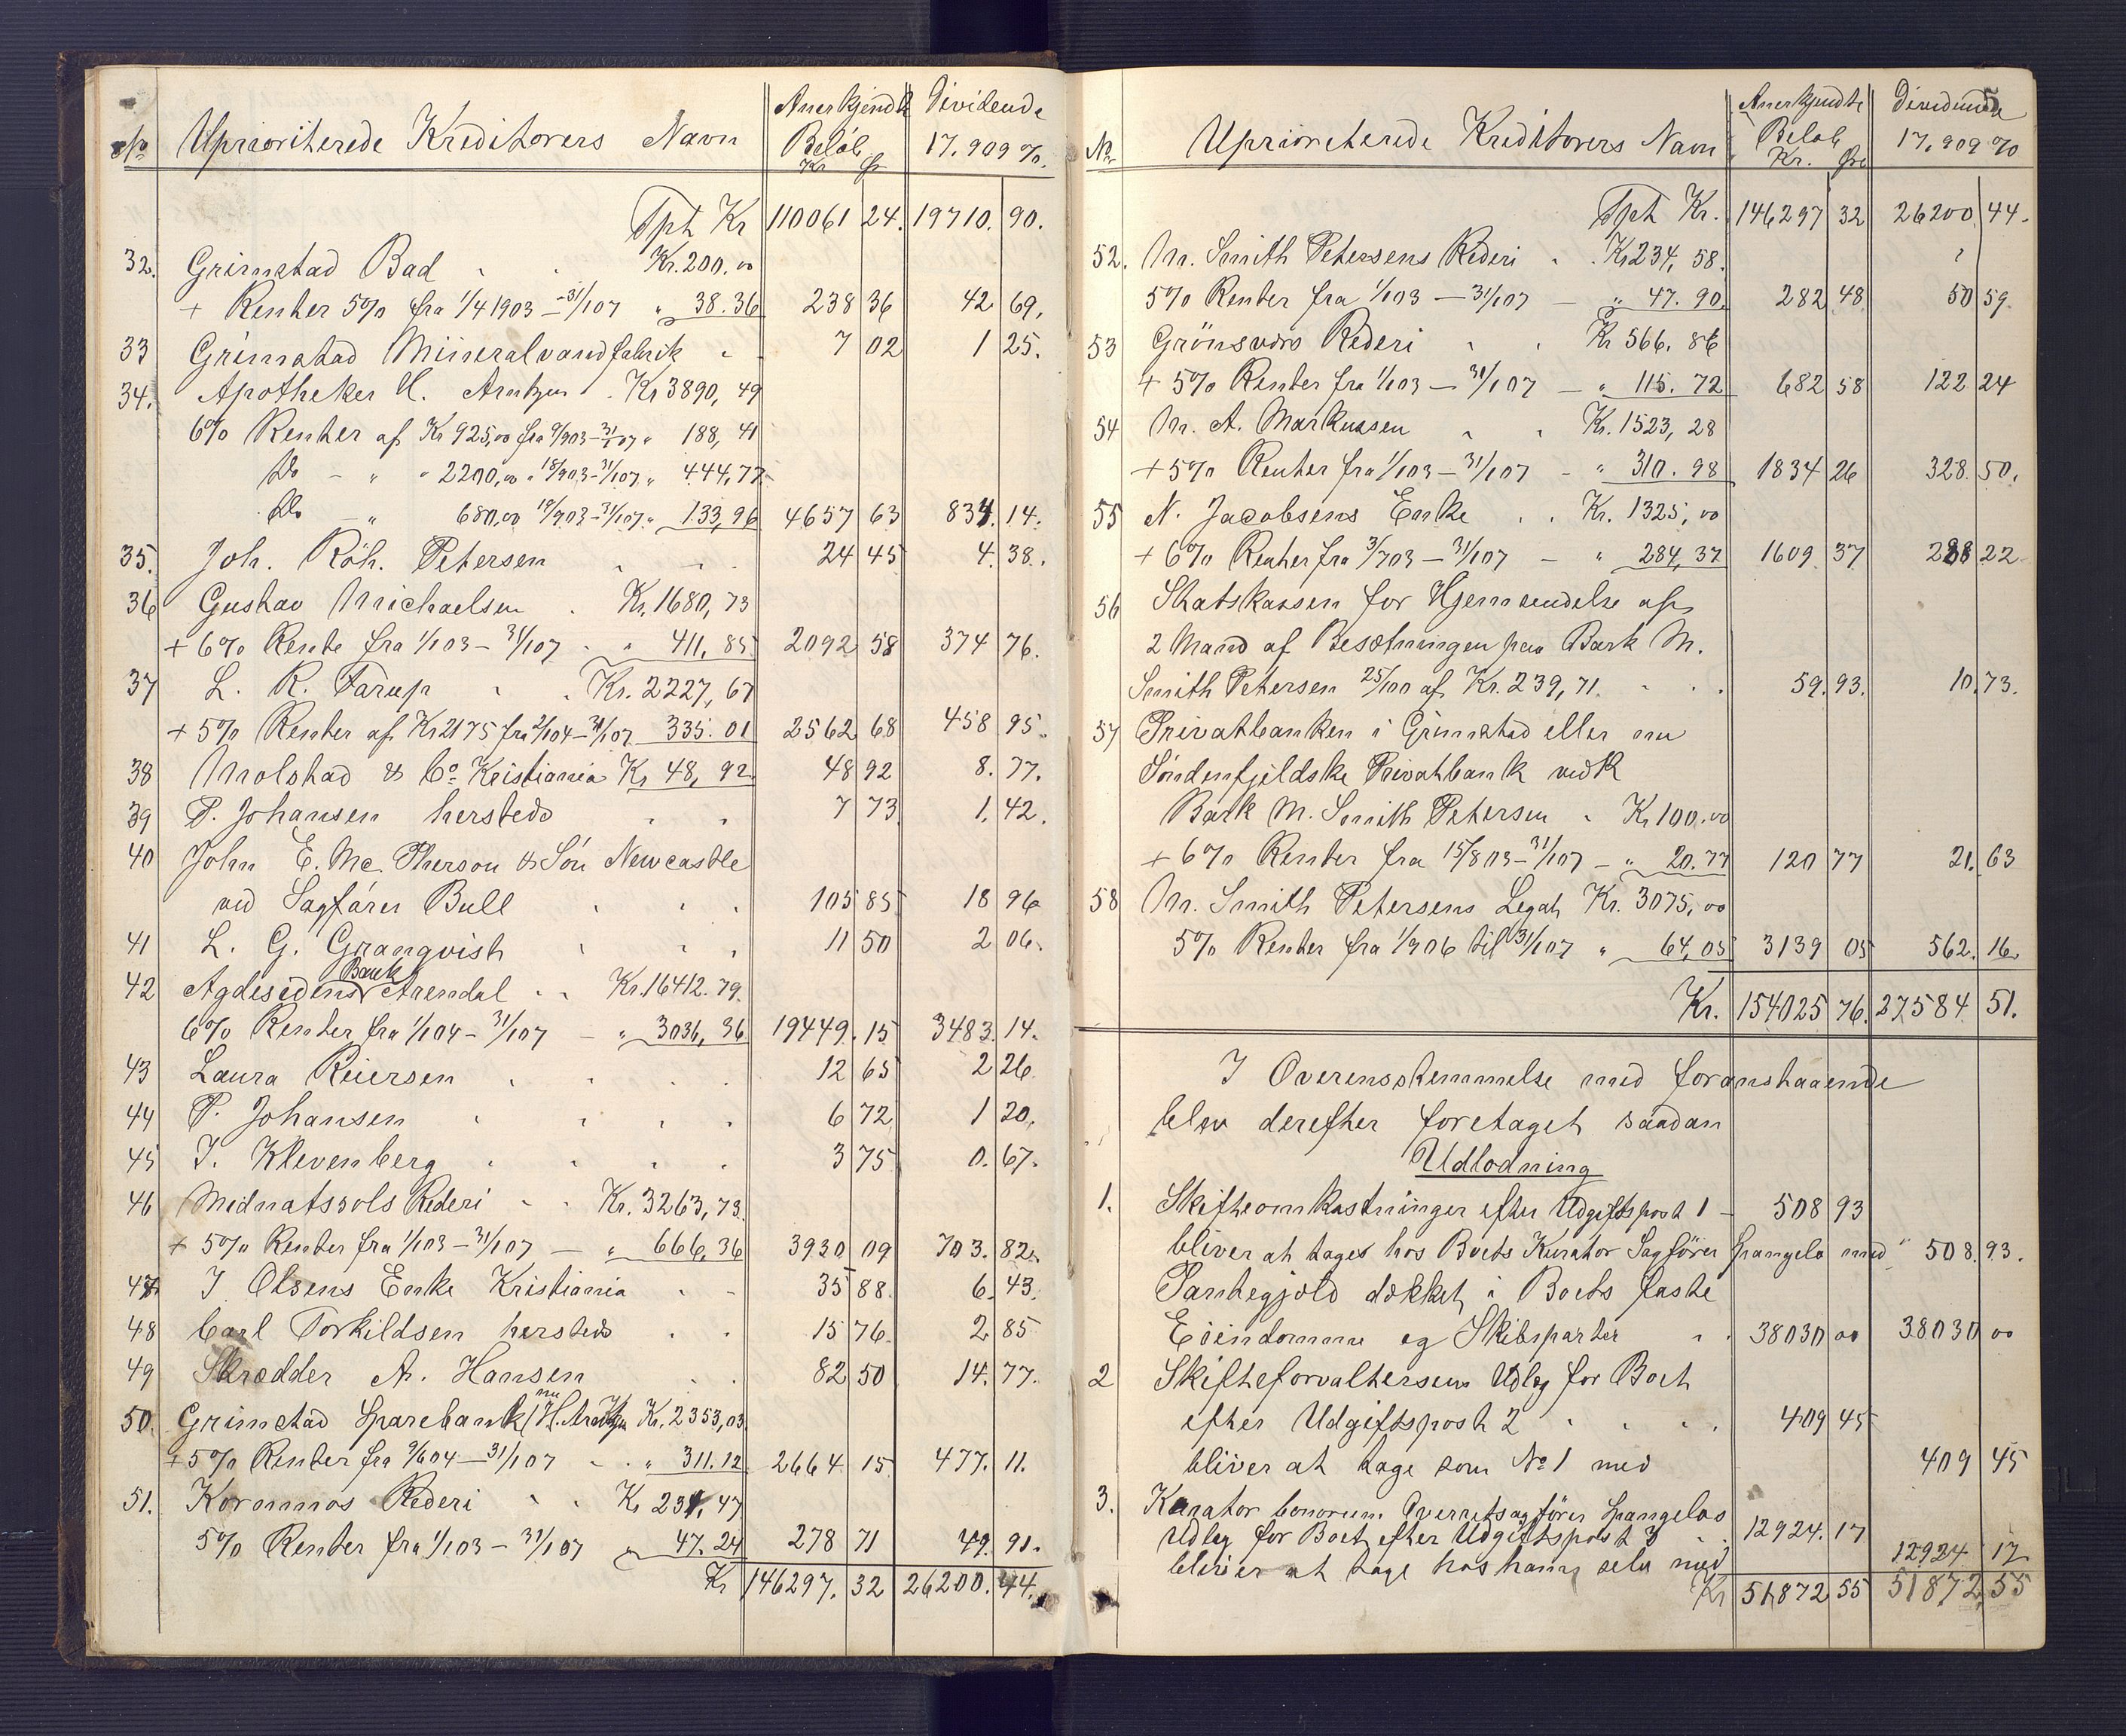 No Uprioriterede Kreditorers Navn Anerkjendte Beløb Kr Ør Dividende 17.909 %.
Tpt Kr 110061 24. 19710. 90.
32. Grimstad Bad Kr. 200.00
+ Renter 5% fra 1/4 1903 – 31/1 07 " 38.36 238 36 42 69.
33 Grimstad Mineralvandfabrik 7 02 1 25.
34. Apotheker H. Arntzen Kr 3890, 49
6% Renter af Kr 925,00 fra 9/9 03 – 31/1 07 " 188, 41
Do – " " 2200,00 " 18/9 03 – 31/1 07 " 444,77
Do – " 680,00 19/9 03 – 31/1 07 " 133,96 4657 63 834. 14.
35. Joh. Röh. Petersen 24 45 4. 38.
36 Gustav Michaelsen Kr. 1680, 73
+ 6% Rente fra 1/1 03 – 31/1 07 " 411, 85 2092 58 374 76.
37 L. R. Tarup Kr. 2227, 67
+ 5% Renter af Kr 2175 fra 2/1 04 – 31/1 07 335. 01 2562 68 458 95.
38 Molstad & Co Kristiania Kr 48, 92 48 92 8. 77.
39 P. Johansen hersteds 7 73 1. 42.
40 John E. Mc. Pherson & Sön Newcastle
ved Sagfører Bull 105 85 18 96
41 L. G. Granqvist 11 50 2 06.
42 Agdesidens Bank Arendal Kr. 16412. 79.
6% Renter fra 1/1 04 – 31/1 07 – " 3036, 36 19449. 15 3483. 14.
43 Laura Reiersen 12 65 2 26.
44 P. Johansen 6 72 1 20.
45 J. Klevenberg 3 75 0. 67.
46 Midnatssols Rederi Kr. 3263, 73.
+ 5% Renter fra 1/1 03 – 31/1 07 – " 666, 36 3930 09 703. 82.
47 J. Olsens Enke Kristiania 35 88. 6. 43.
48 Carl Torkildsen hersteds 15 76. 2 85
49 Skrædder A. Hansen 82 50 14. 77.
50. Grimstad Sparebank (nu H. Arntzen Kr. 2353,03
+ 5% Renter fra 9/6 04 – 31/1 07 " 311.12 2664 15 477. 11.
51. Korsmos Rederi Kr 231, 47
5% Renter fra 1/1 03 – 31/1 07 " 47. 24 278 71 49. 91.
Kr 146297. 32 26200. 44.
No Uprioriterede Kreditorers Navn Anerkjendte Beløb Kr. Øre Dividende 17.909 %
Tpt Kr. 146297 32 26200 44.
52. M. Smith Petersens Rederi Kr 234, 58.
5% Renter fra 1/1 03 – 31/1 07 – " 47. 90. 282 48 50 59.
53 Grönsunds Rederi Kr 566. 86
+ 5% Renter fra 1/1 03 – 31/1 07 – " 115. 72 682 58 122 24
54 M. A. Markussen Kr. 1523, 28
+ 5% Renter fra 1/1 03 – 31/1 07 – " 310. 98 1834 26 328. 50.
55 N. Jacobsens Enke Kr. 1325,00
+ 6% Renter fra 3/7 03 – 31/1 07 – " 284, 37 1609. 37 288 22
56 Statskassen for Hjemsendelse af
2 Mand af Besætningen paa Bark M.
Smith Petersen 25/100 af Kr. 239, 71. 59. 93. 10. 73.
57 Privatbanken i Grimstad eller nu
Söndenfjeldske Privatbank vedk
Bark M. Smith Petersen Kr 100.00
+ 6% Renter fra 15/8 03 – 31/1 07 – " 20. 77 120 77 21. 63
58 M. Smith Petersens Legat Kr. 3075,00
5% Renter fra 1/9 06 til 31/1 07 " 64,05 3139 05 562. 16.
Kr. 154025 76. 27584 51.
I Overensstemmelse med foranstaaende
blev derefter foretaget saadan
Udlodning
1. Skifteomkostninger efter Udgiftspost 1 – 508 93
bliver at tages hos Boets Kurator Sagfører Spangelo med " 508. 93.
Pantegjæld dækket i Boets faste
Eiendomme og Skibsparter 38030 00 38030 00
2 Skifteforvalterens Udlæg for Boet
efter Udgiftspost 2 409 45
bliver at tage som No 1 med 409 45
3. Kurator bonorum Overretssagfører Spangelos
Udlæg for Boet efter Udgiftspost 3 12924. 17
bliver at tage hos ham selv med 12924 17
Kr 51872 55 51872 55